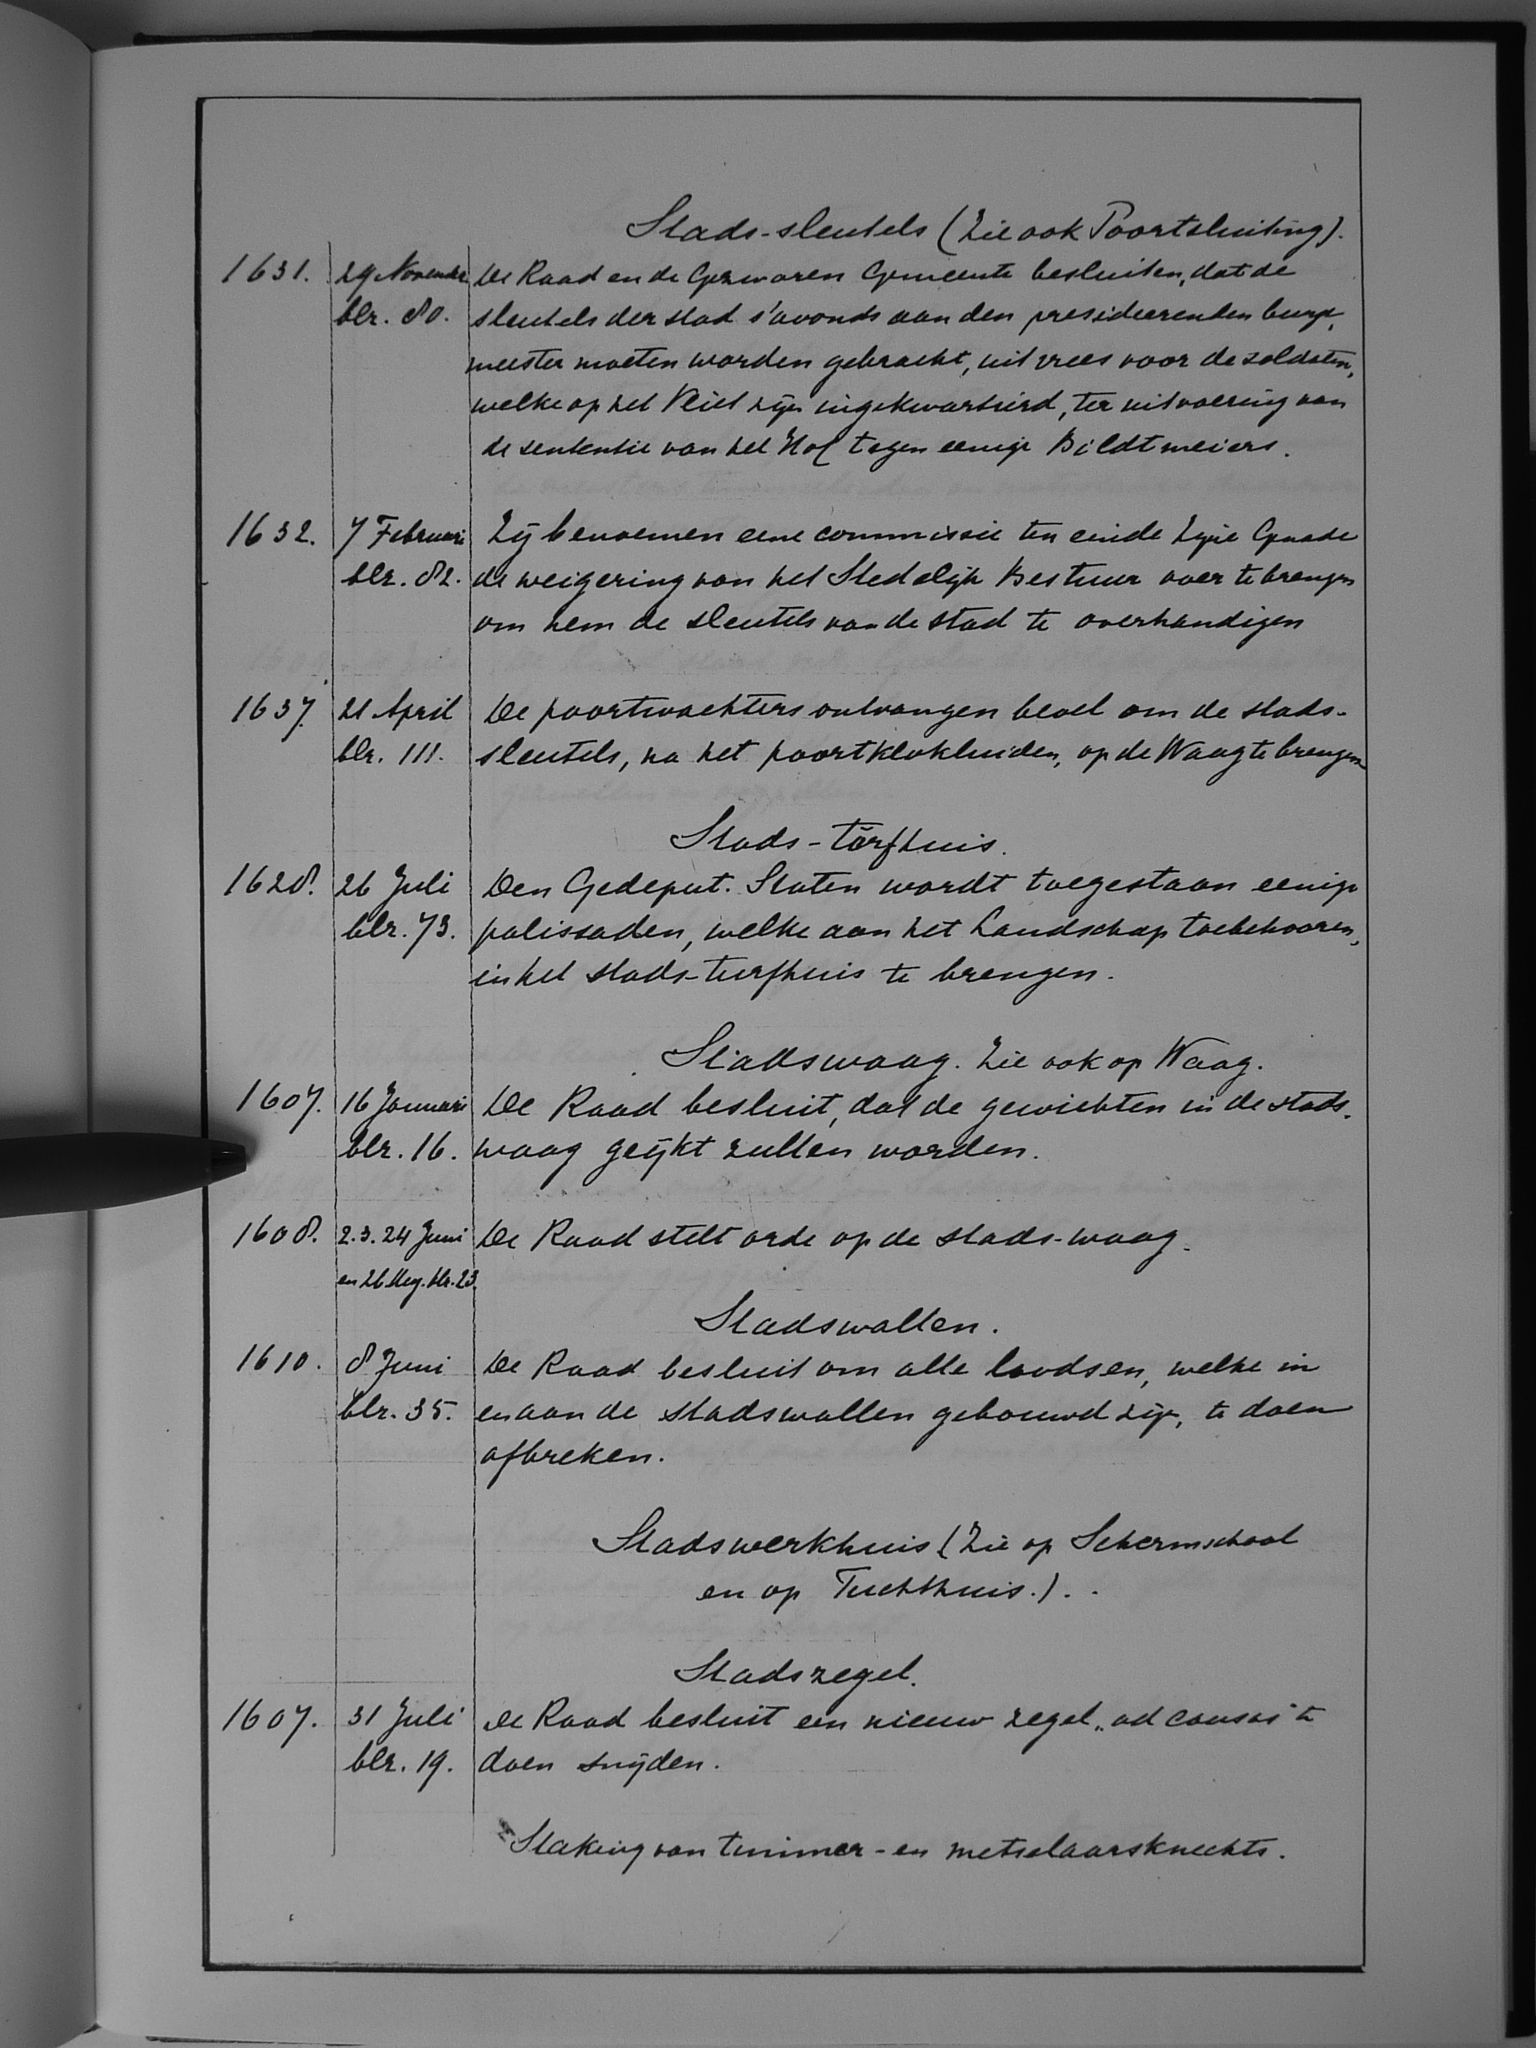 Stads-sleutels (Zie ook Poortsluiting).
1631. 29 November De Raad en de Gezworen Gemeente besluiten, dat de
blz. 80. sleutels der stad s'avonds aan den presideerenden burge-
meester moeten worden gebracht, uit vrees voor de soldaten,
welke op het Vliet zijn ingekwartierd, ter uitvoering van
de sententie van het Hof tegen eenige Bildtmeiers.
1632. 7 Februari Zij benoemen eene commissie ten einde Zijne Genade
blz. 82. de weigering van het Stedelijk Bestuur over te brengen
om hem de sleutels van de stad te overhandigen
1637. 21 April De poortwachters ontvangen bevel om de stads-
blz. 111. sleutels, na het poortklokluiden, op de Waag te brengen
Stads-törfhuis.
1628. 26 Juli Den Gedeput. Staten wordt toegestaan eenige
blz. 73. palissaden, welke aan het Landschap toebehooren,
in het stads-turfhuis te brengen.
Stadswaag. Zie ook op Waag.
1607. 16 Januari De Raad besluit, dat de gewichten in de stads-
blz. 16. waag geijkt zullen worden.
1608. 2.3.24 Juni De Raad stelt orde op de stads-waag.
en 26 blz. 23.
Stadswallen.
1610. 8 Juni De Raad besluit om alle loodsen, welke in
blz. 35. en aan de stadswallen gebouwd zijn, te doen
afbreken.
Stadswerkhuis (Zie op Schermschool
en op Tuchthuis.).
Stadszegel.
1607. 31 Juli De Raad besluit een nieuw zegel „ad causas" te
blz. 19. doen snijden.
Staking van timmer- en metselaarsknechts.